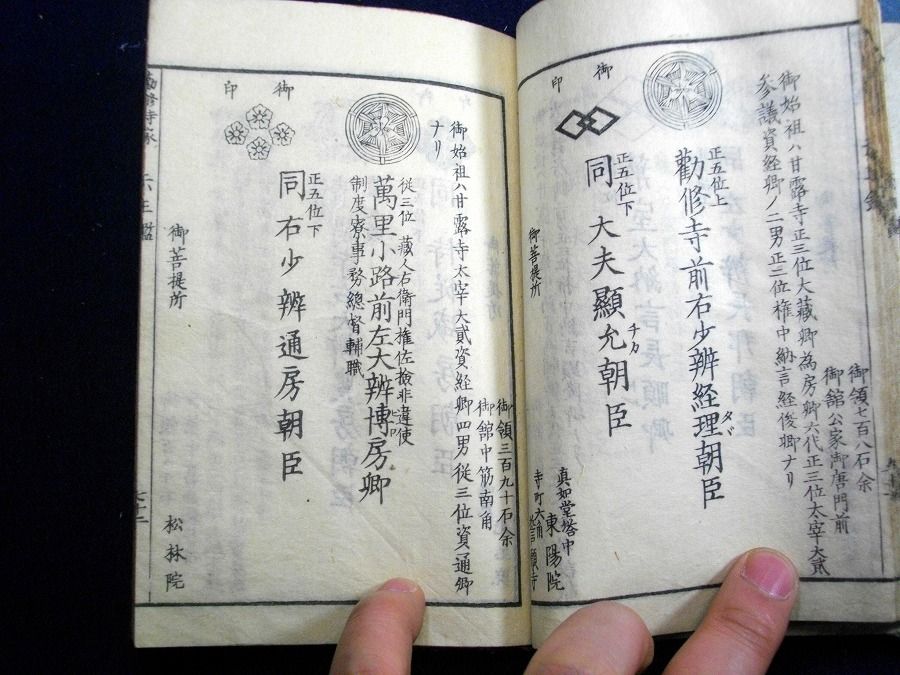 御領七百八石余
御舘公家御唐門前
御始祖ハ甘露寺正三位大藏卿為房卿六代正三位太宰大貳
参議資経卿ノ二男正三位権中納言経俊卿ナリ
正五位上
勸修寺前右少辨経理朝臣
タヾ
正五位下
同 大夫顯允朝臣
チカ
御印
御菩提所
真如堂塔中
東陽院
御領三百九十石余
御舘中筋南角
御始祖ハ甘露寺太宰大貳資経卿四男従三位資通卿
ナリ
従三位 藏人右衛門権佐撿非違使
萬里小路前左大辨博房卿
ヒロ
制度寮事務總督輔職
正五位下
同 右少辨通房朝臣
御印
御菩提所
松林院
七十二